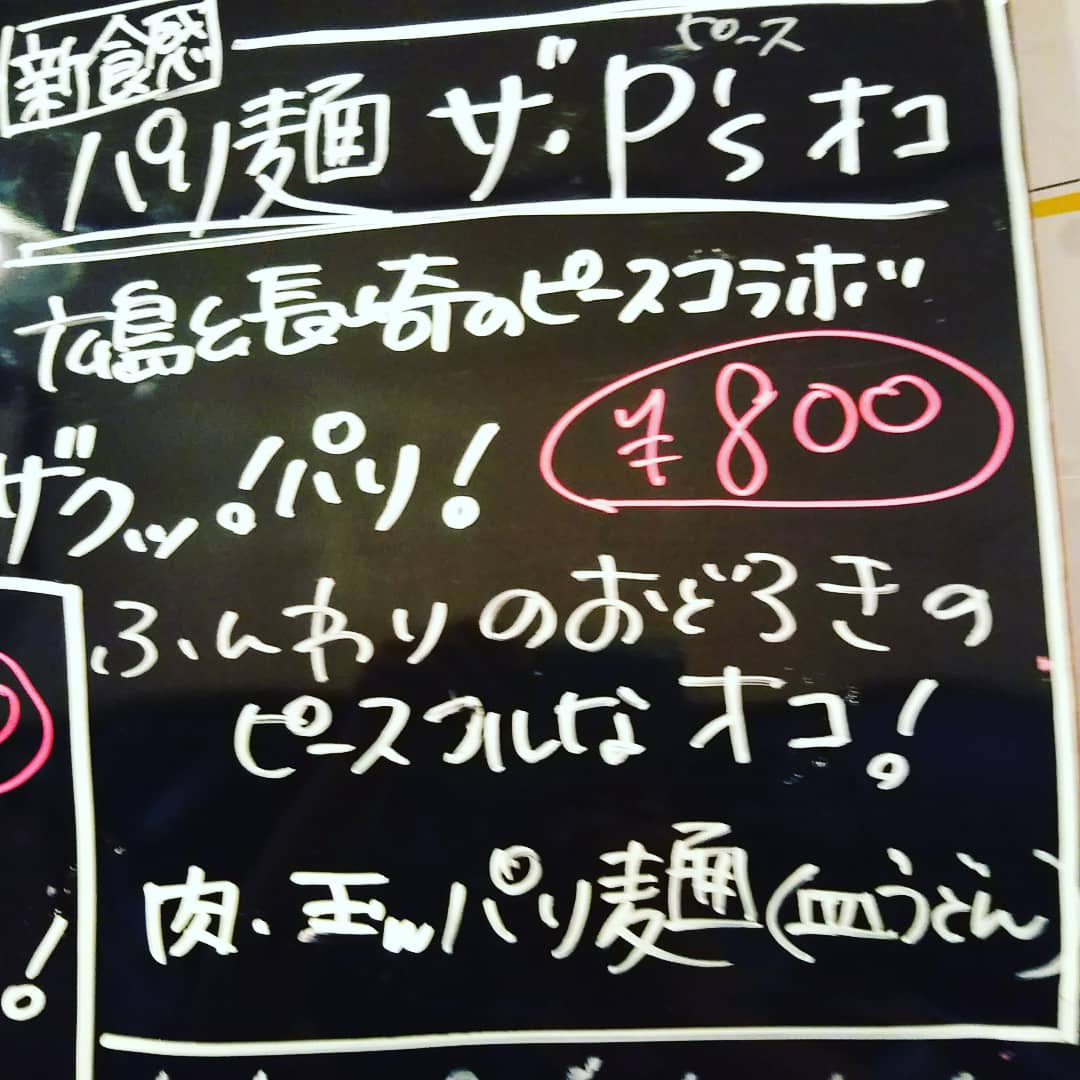 新食感
ピース
パリ麺 ザ・P's オコ
広島と長崎のピースコラボ
¥800
ザクッ!パリ!
ふんわりのおどろきの
ピースフルなオコ!
肉・玉w パリ麺(皿うどん)
!